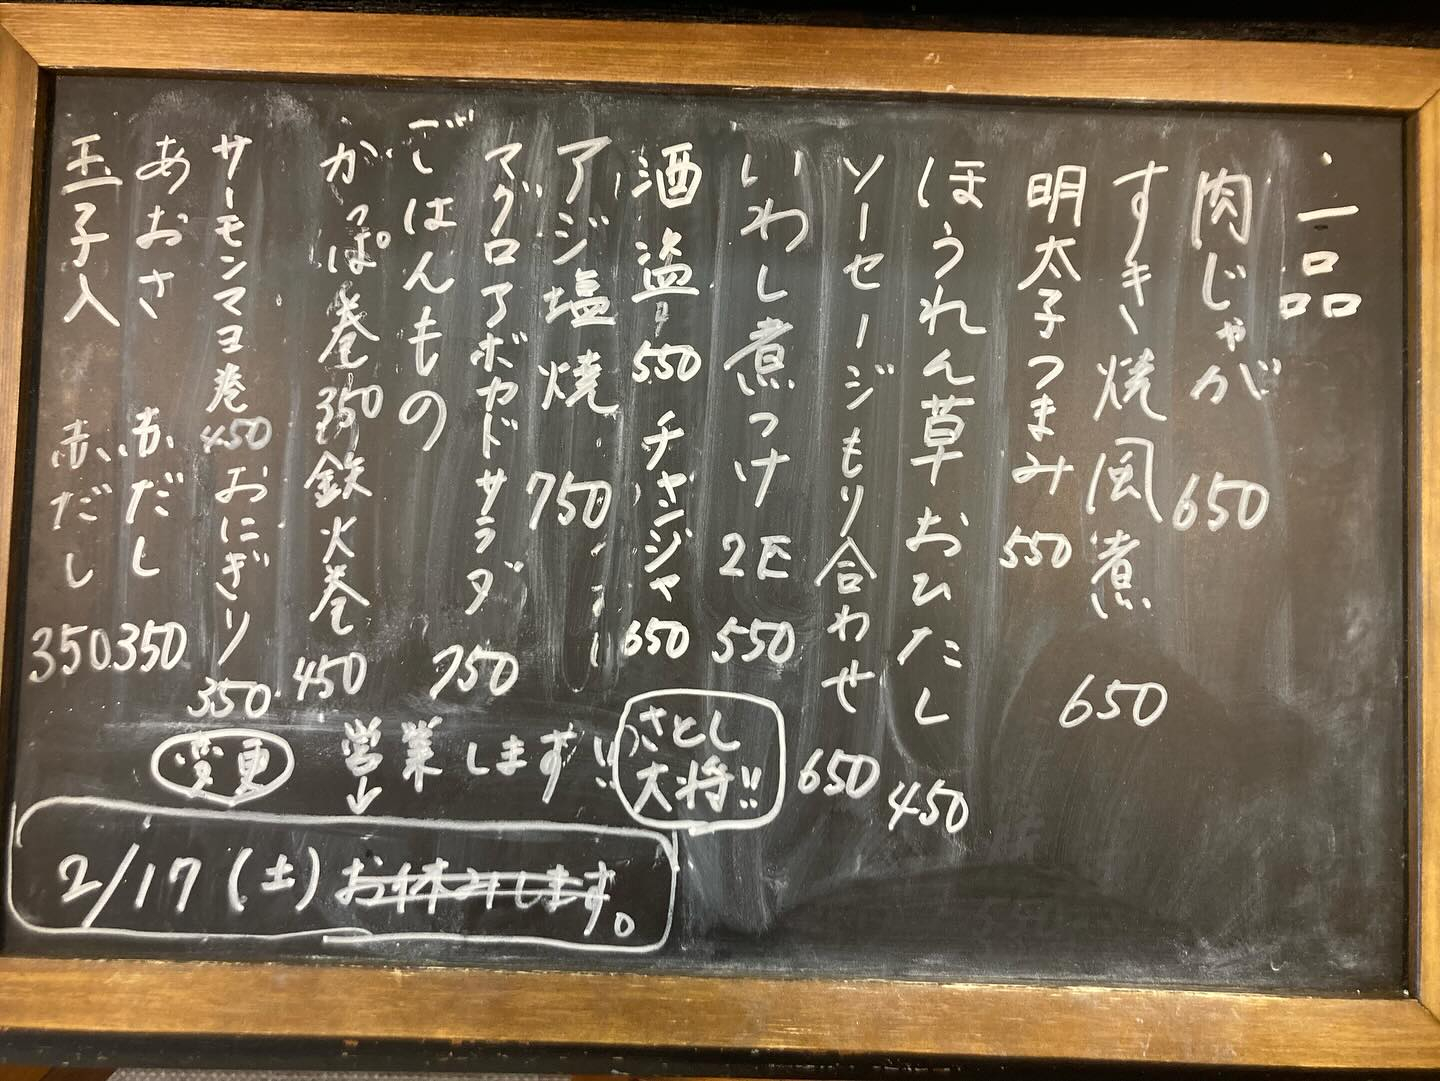 一品
肉じゃが 650
すき焼風煮 650
明太子つまみ 550
ほうれん草おひたし 450
ソーセージもり合わせ 650
いわし煮つけ 2E 550
酒盗 550 チャンジャ 650
アジ塩焼 750
マグロアボカドサラダ 750
ごはんもの
かっぱ巻 350 鉄火巻 450
サーモンマヨ巻 450 おにぎり 350
あおさ 赤だし 350
玉子入 赤だし 350
変更 営業します!! さとし大将!!
↓
2/17(土) お休みします。